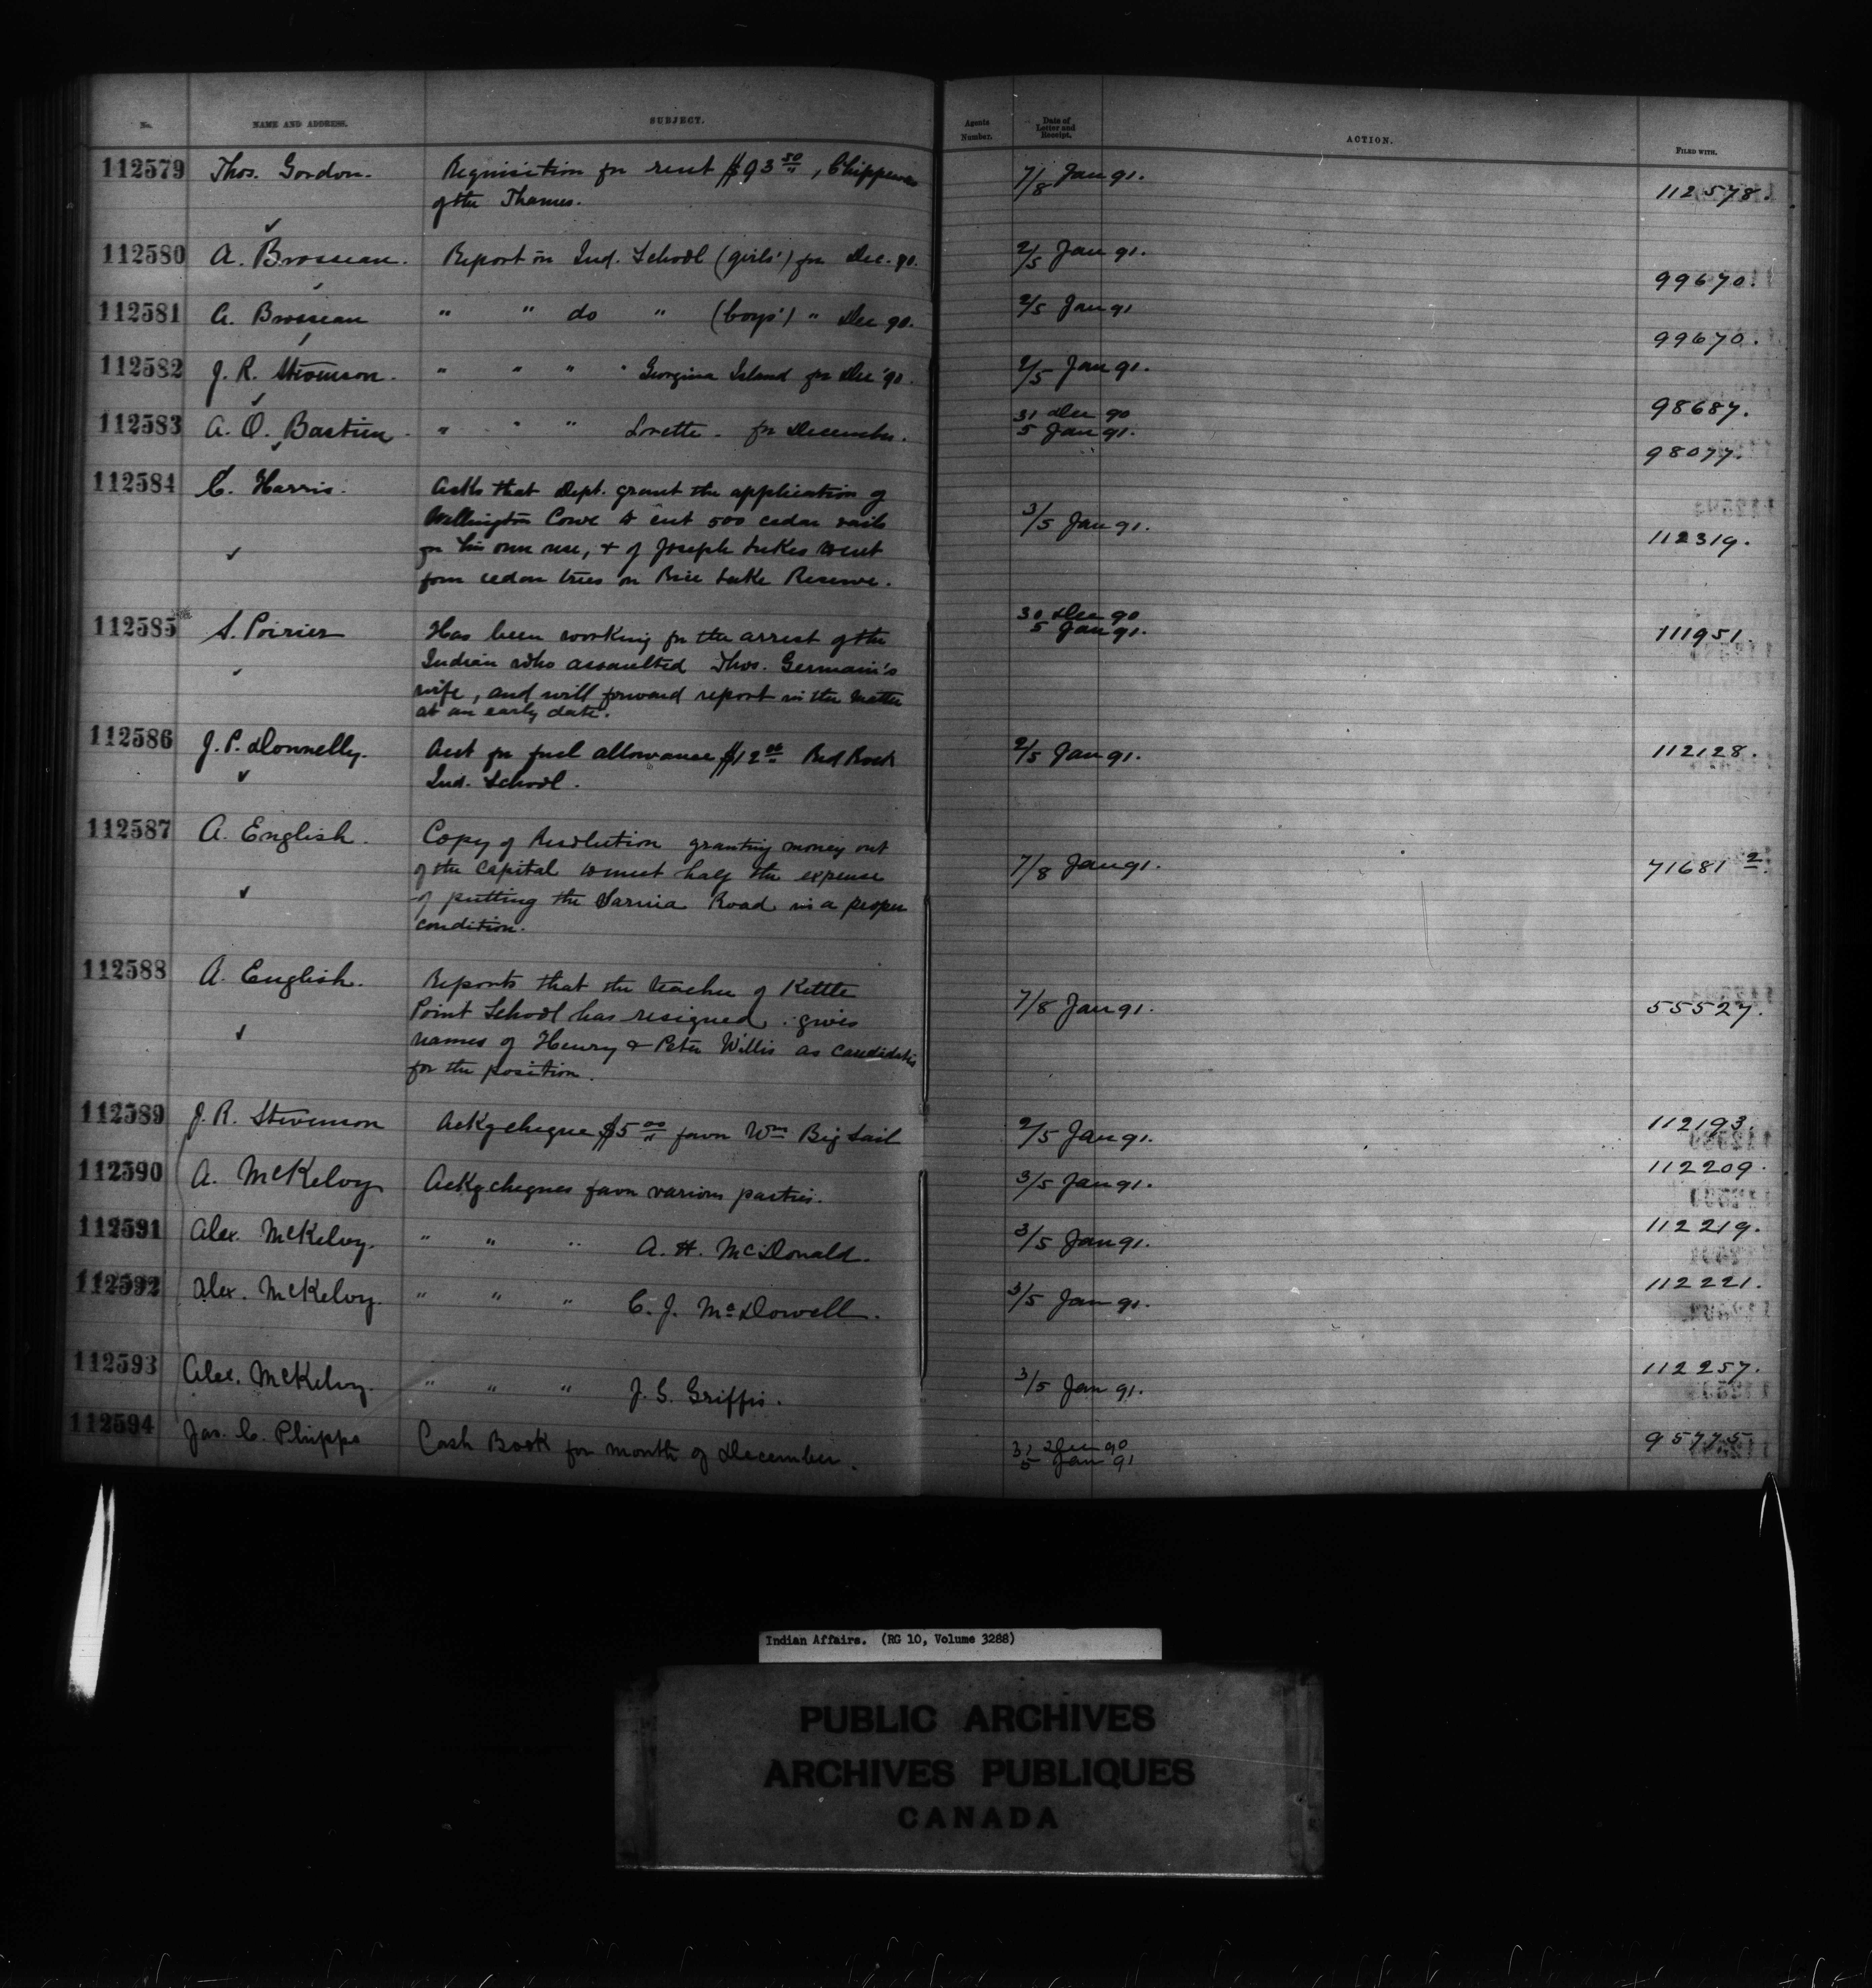 No. NAME AND ADDRESS. SUBJECT. Agents Number. Date of Letter and Receipt. ACTION. FILED WITH.
112579 Thos. Gordon. Requisition for rent $93 50/", Chippewas 7/8 Jan 91. 112578.
of the Thames.
112580 A. Brosseau. Report on Ind. School (girls') for Dec. 90. 2/5 Jan 91. 99670.
112581 A. Brosseau " " do " (boys') " Dec 90. 2/5 Jan 91 99670.
112582 J. R. Stevenson. " " " " Georgina Island for Dec '90. 2/5 Jan 91. 98687.
112583 A. O. Bastien. " " " Lorette for December. 31 Dec 90 98077.
5 Jan 91.
112584 C. Harris. Asks that Dept. grant the application of
Wellington Cowe to cut 500 cedar rails 3/5 Jan 91. 112319.
for his own use, & of Joseph Lukes to cut
four cedar trees on Rice Lake Reserve.
112585 S. Poirier Has been working for the arrest of the 30 Dec 90 111951.
5 Jan 91.
Indian who assaulted Thos. Germain's
wife, and will forward report in the matter
at an early date.
112586 J. P. Donnelly. Acct for fuel allowance $12 00 Red Rock 2/5 Jan 91. 112128.
Ind. School.
112587 A. English. Copy of Resolution granting money out
of the Capital to meet half the expense 7/8 Jan 91. 71681 2.
of putting the Sarnia Road in a proper
condition.
112588 A. English. Reports that the teacher of Kettle
Point School has resigned. gives 7/8 Jan 91. 55527.
names of Henry & Peter Willis as candidates
for the position.
112589 J. R. Stevenson Ackg cheque $5 00/" favor Wm Big Sail 2/5 Jan 91. 112193.
112590 A. McKelvy Ackg cheques favor various parties. 3/5 Jan 91. 112209.
112591 Alex. McKelvy. " " " A. H. McDonald. 3/5 Jan 91. 112219.
112592 Alex. McKelvy. " " " C. J. McDowell. 3/5 Jan 91. 112221.
112593 Alex. McKelvy. " " " J. S. Griffis. 3/5 Jan 91. 112257.
112594 Jas. C. Phipps Cash Book for month of December. 31 Dec 90 95775
5 Jan 91
Indian Affairs. (RG 10, Volume 3288)
PUBLIC ARCHIVES
ARCHIVES PUBLIQUES
CANADA